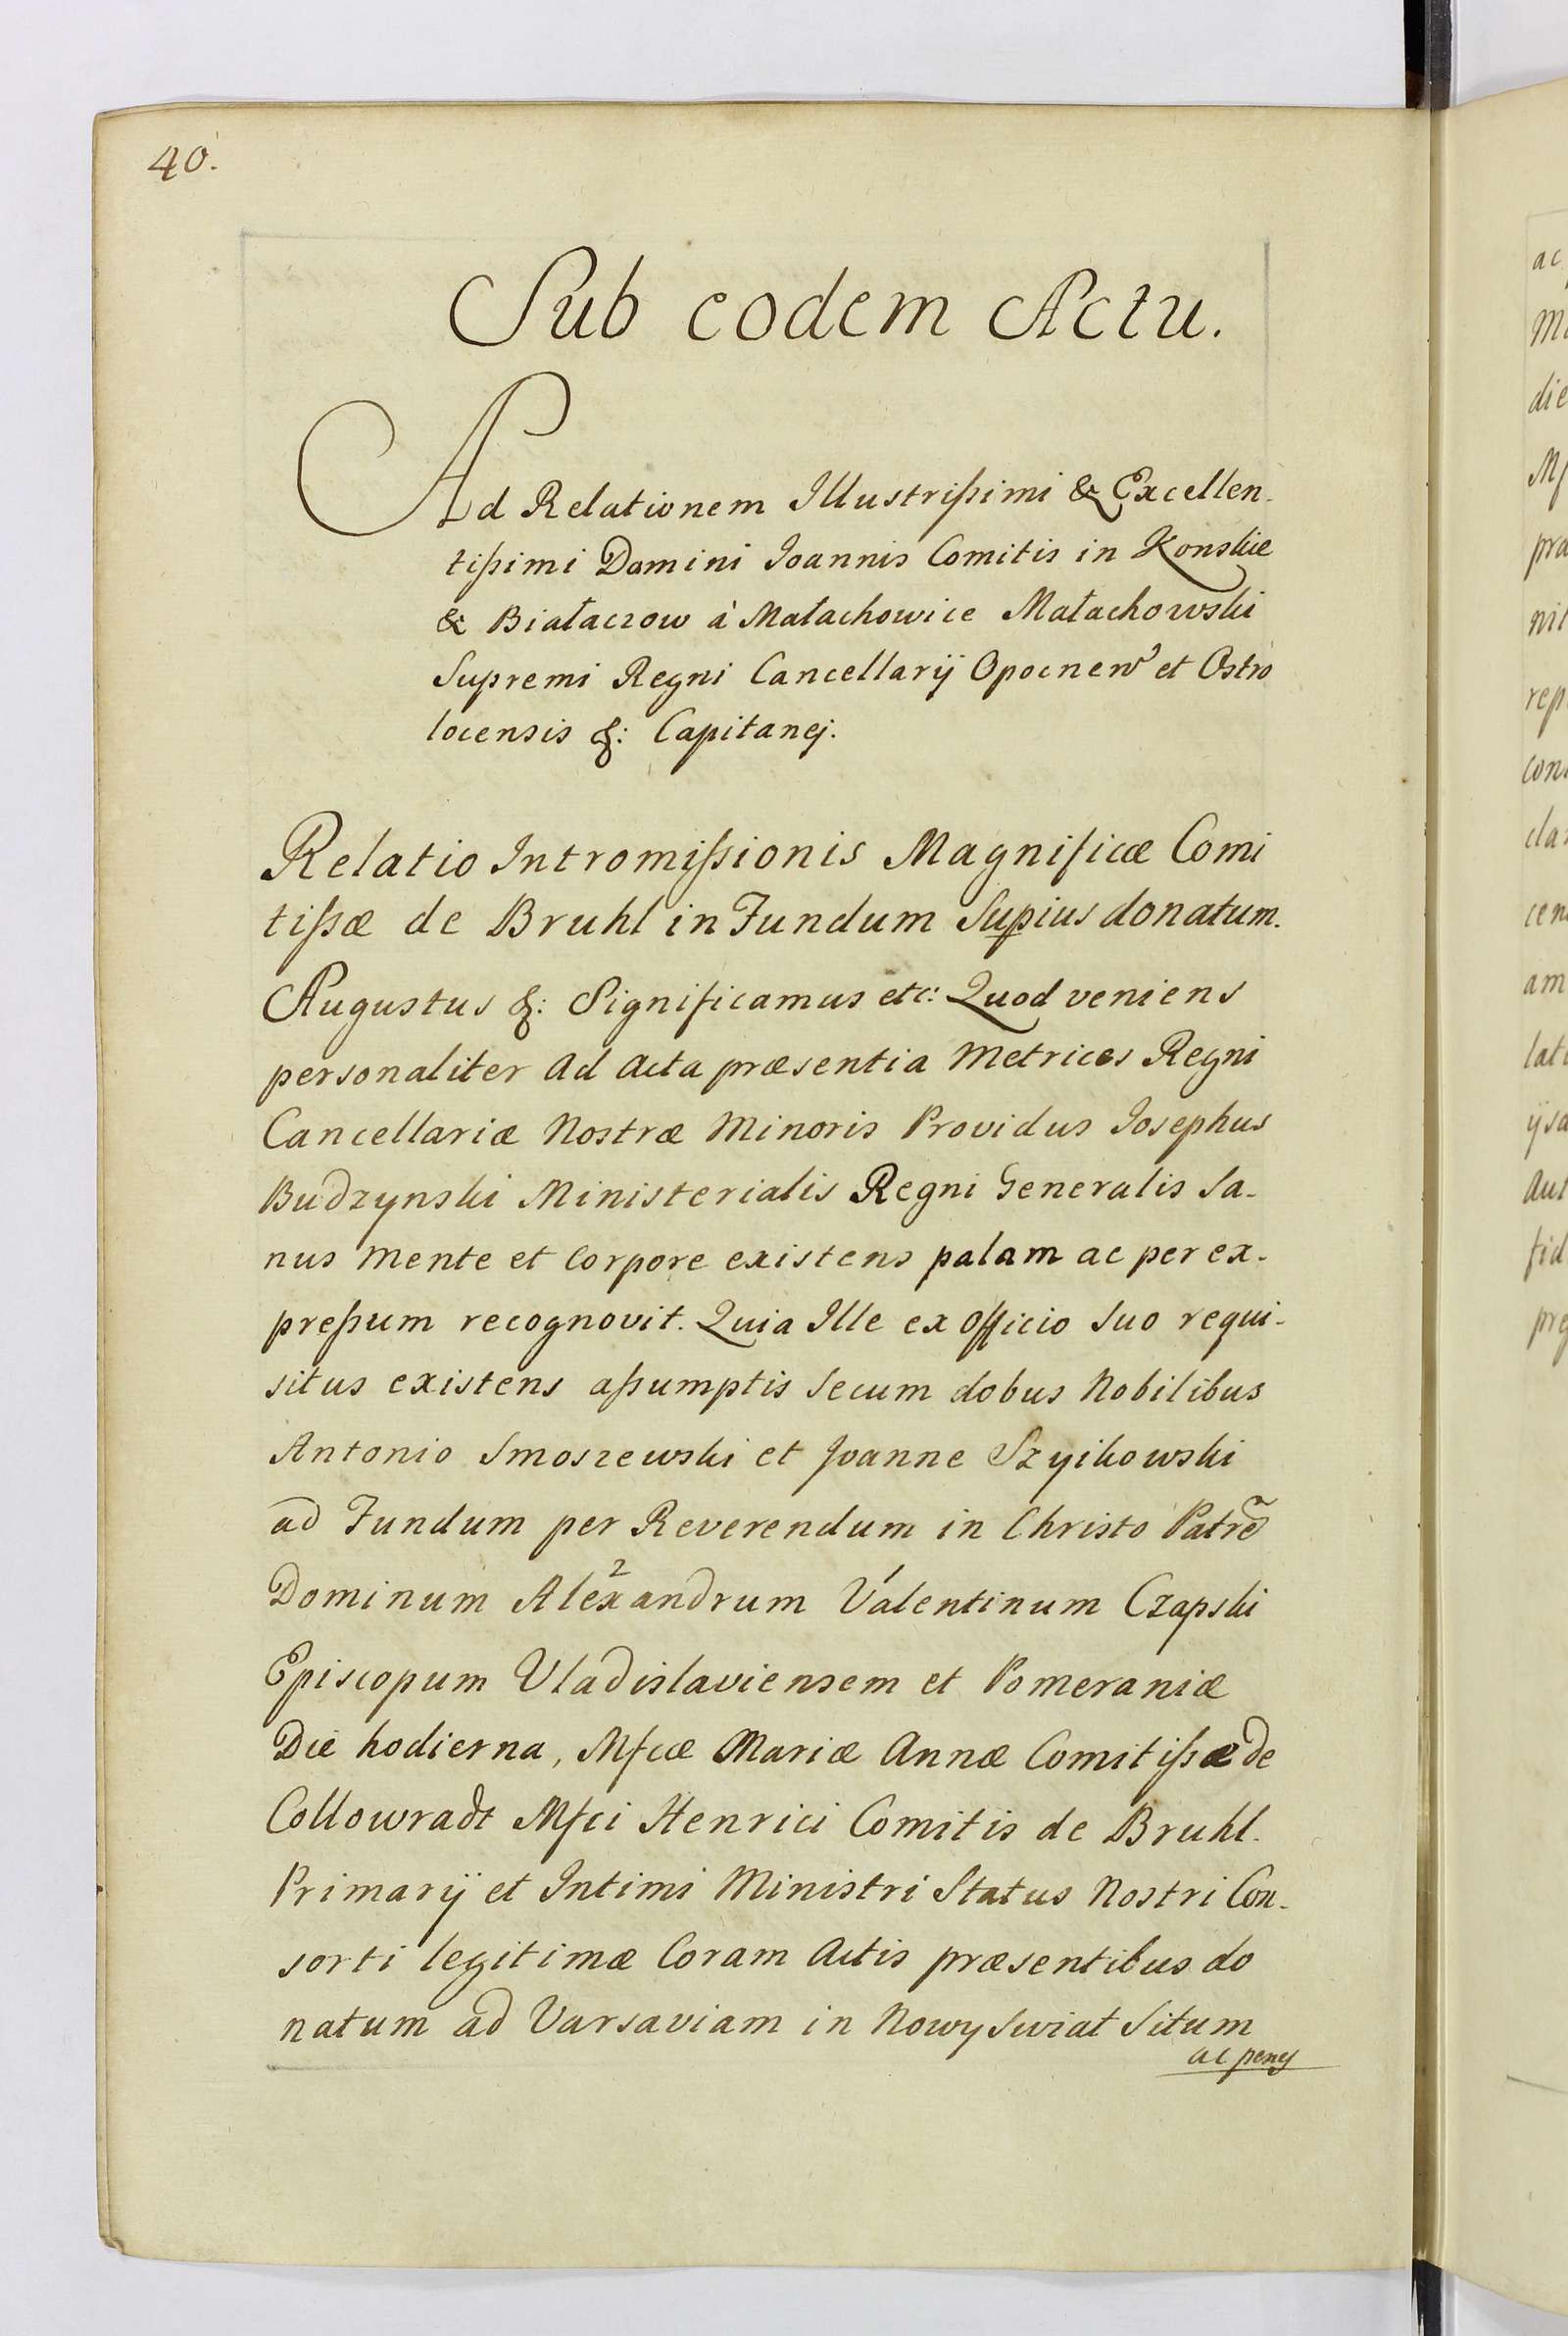 40.
Sub eodem Actu.
Ad Relationem Illustrißimi & Excellen-
tißimi Domini Joannis Comitis in Konskie
& Białaczow à Małachowice Małachowski
Supremi Regni Cancellarij Opocnen' et Ostro
locensis &: Capitanej.
Relatio Intromißionis Magnificæ Comi
tißæ de Bruhl in Fundum Supius donatum.
Augustus &: Significamus etc: Quod veniens
personaliter ad acta præsentia Metrices Regni
Cancellariæ Nostræ Minoris Providus Josephus
Budzynski Ministerialis Regni Generalis Sa-
nus mente et Corpore existens palam ac per ex-
preßum recognovit. Quia Ille ex officio suo requi-
situs existens aßumptis secum dobus Nobilibus
Antonio Smoszewski et Joanne Szyikowski
ad Fundum per Reverendum in Christo Patrẽ
Dominum Alexandrum 2 Valentinum 1 Czapski
Episcopum Vladislaviensem et Pomeraniæ
Die hodierna, Mfcæ Mariæ Annæ Comitißæ de
Collowradt Mfci Henrici Comitis de Bruhl.
Primarij et Intimi Ministri Status Nostri Con-
sorti legitimæ Coram Actis præsentibus do
natum ad Varsaviam in Nowy Swiat Situm
ac penes
ac
die
pra
nit
rep
con
cla
cen
am
lat
ijsd
aut
fid